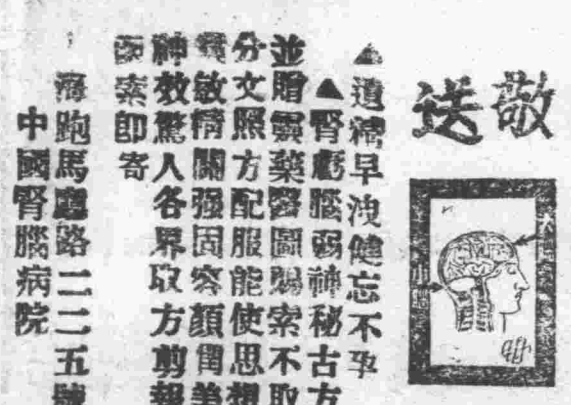 敬送
大腦
小腦
▲遺精早洩健忘不孕
▲腎虧腦弱神秘古方
並贈靈藥醫圖賜索不取
分文照方配服能使思想
敏精關强固容顏潤美
神效驚人各界取方剪報
函索即寄
海跑馬廳路二二五號
中國腎腦病院